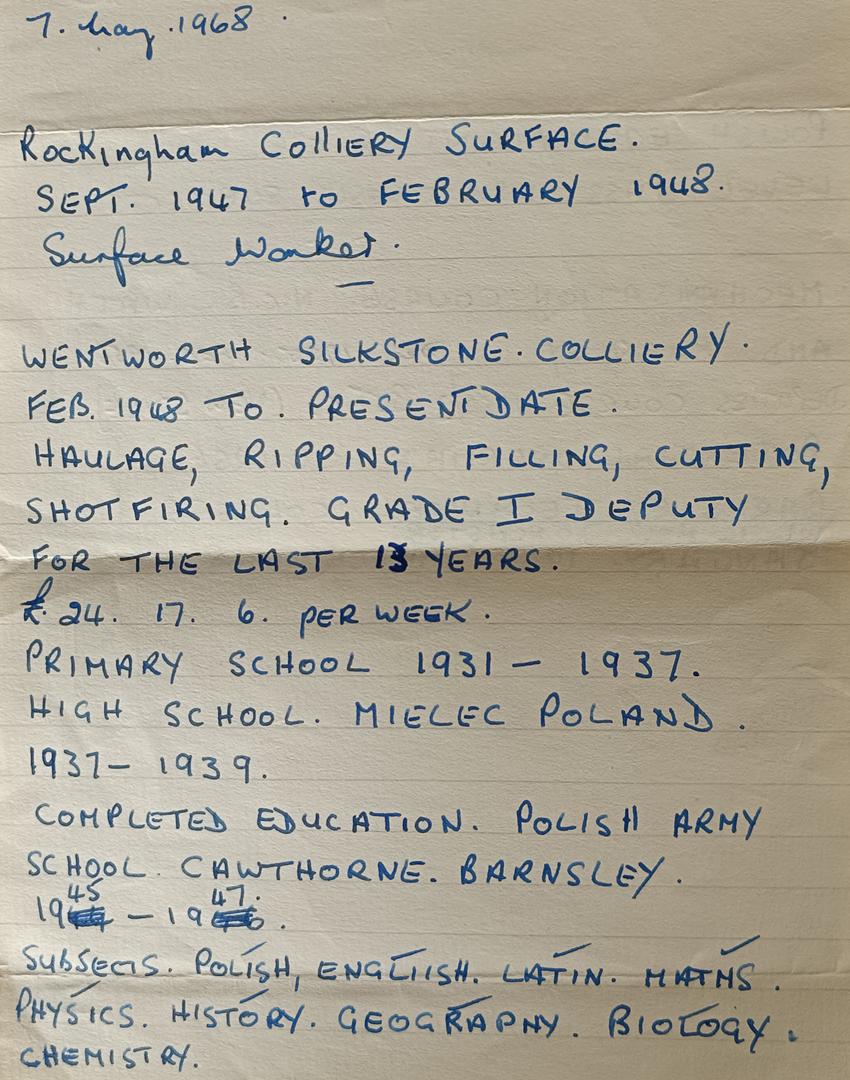 7. May. 1968.
Rockingham COLLIERY SURFACE.
SEPT. 1947 to FEBRUARY 1948.
Surface Worker.
WENTWORTH SILKSTONE. COLLIERY.
FEB. 1948 TO. PRESENT DATE.
HAULAGE, RIPPING, FILLING, CUTTING,
SHOTFIRING. GRADE I DEPUTY
FOR THE LAST 13 YEARS.
£. 24. 17. 6. PER WEEK.
PRIMARY SCHOOL 1931 - 1937.
HIGH SCHOOL. MIELEC POLAND.
1937 - 1939.
COMPLETED EDUCATION. POLISH ARMY
SCHOOL. CAWTHORNE. BARNSLEY.
1945 - 1947.
SUBJECTS. POLISH, ENGLIISH. LATIN. MATHS.
PHYSICS. HISTORY. GEOGRAPHY. BIOLOGY.
CHEMISTRY.